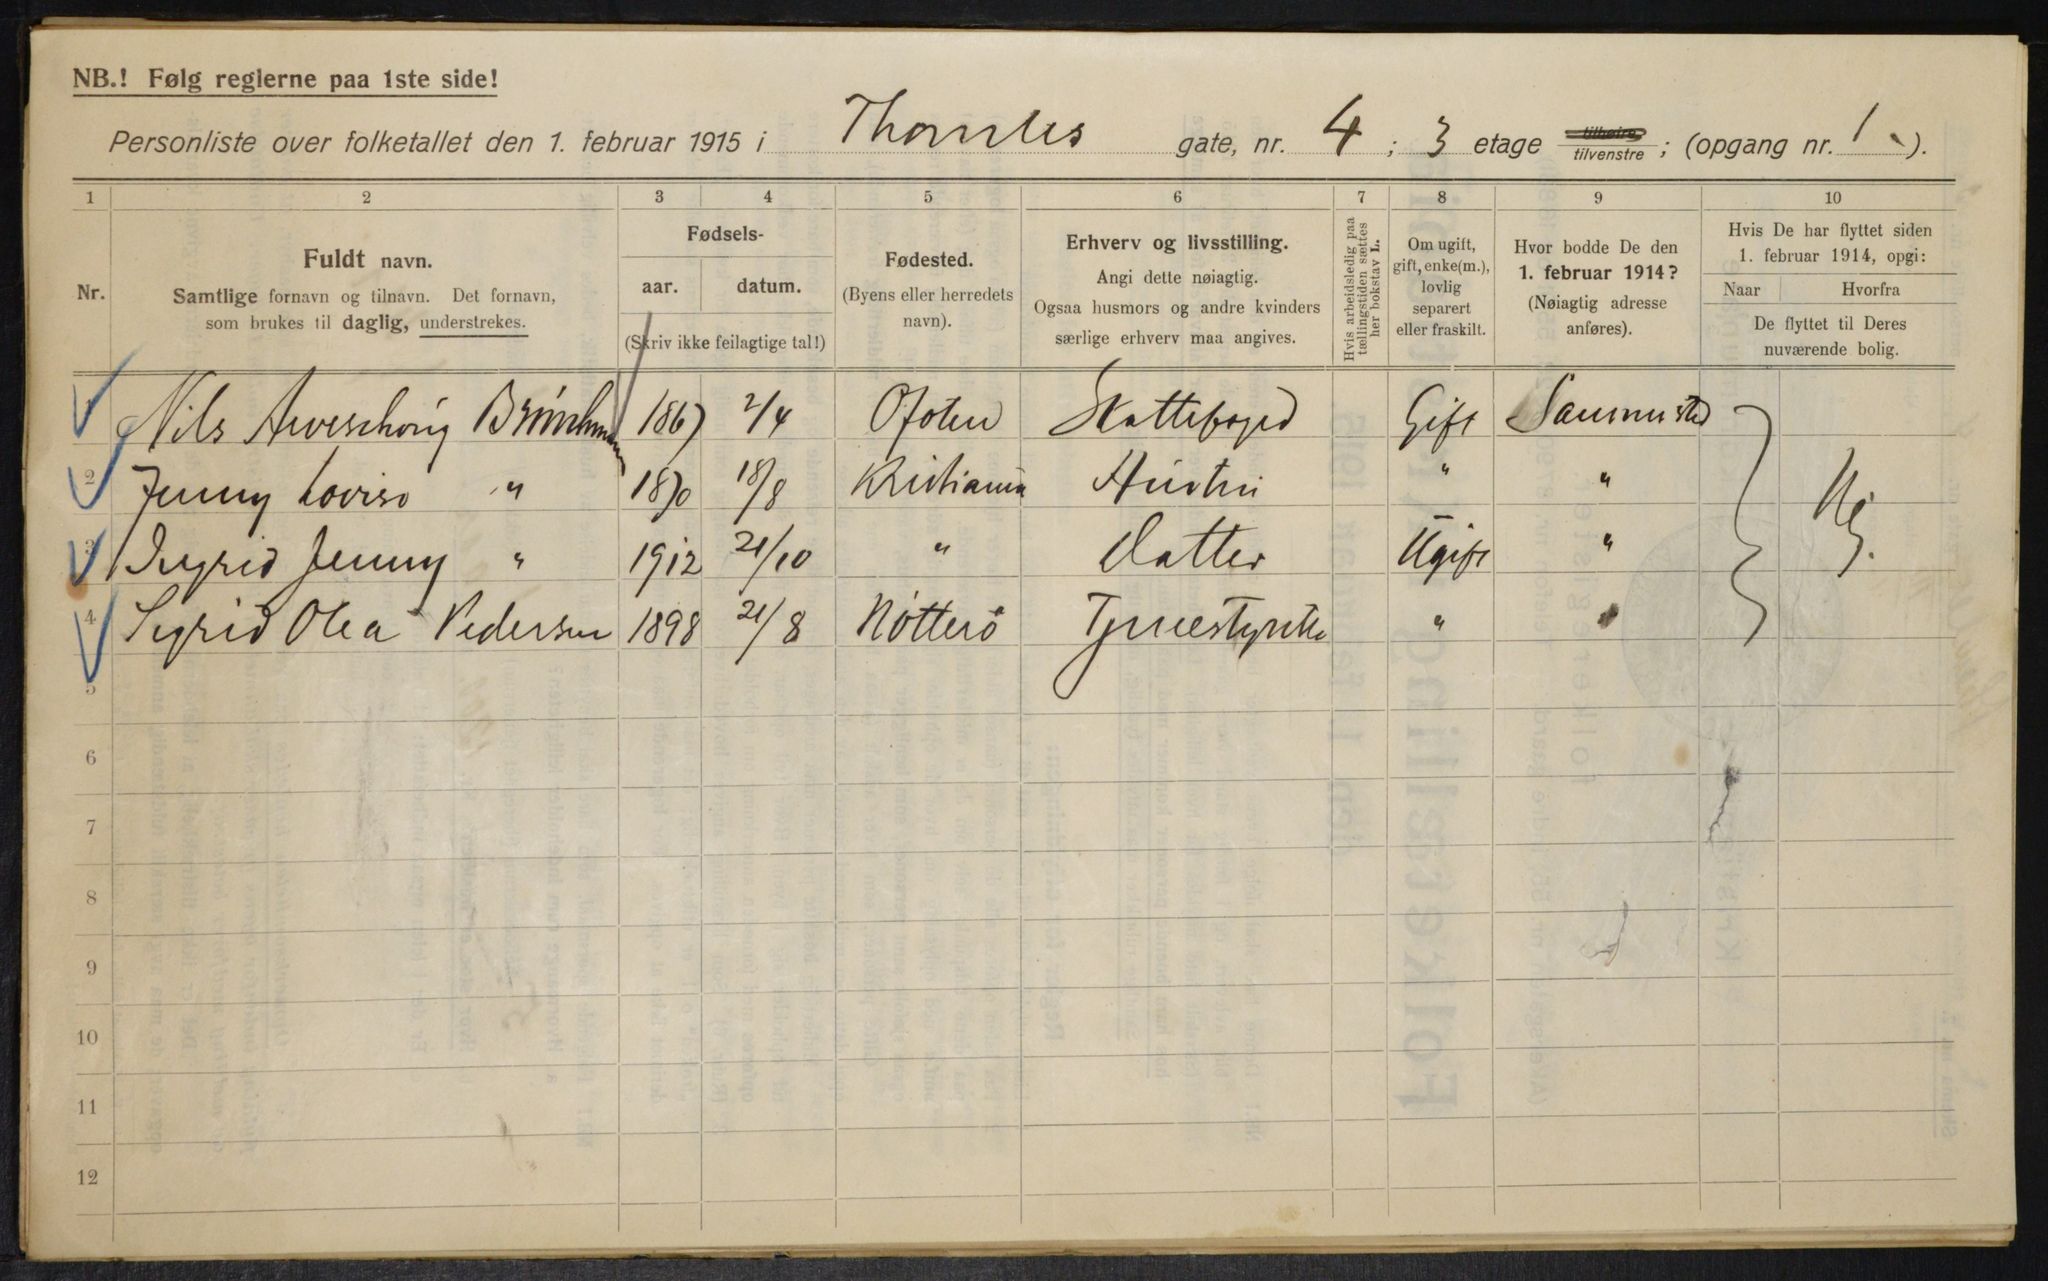 NB.! Følg reglerne paa 1ste side!
Personliste over folketallet den 1. februar 1915 i Thomles gate, nr. 4 ; 3 etage tilhøire tilvenstre ; (opgang nr. 1 ).
1 2 3 4 5 6 7 8 9 10
Nr.
Fuldt navn.
Samtlige fornavn og tilnavn. Det fornavn,
som brukes til daglig, understrekes.
Fødsels-
aar. datum.
(Skriv ikke feilagtige tal!)
Fødested.
(Byens eller herredets
navn).
Erhverv og livsstilling.
Angi dette nøiagtig.
Ogsaa husmors og andre kvinders
særlige erhverv maa angives.
Hvis arbeidsledig paa
tællingstiden sættes
her bokstav L.
Om ugift,
gift, enke(m.),
lovlig
separert
eller fraskilt.
Hvor bodde De den
1. februar 1914?
(Nøiagtig adresse
anføres).
Hvis De har flyttet siden
1. februar 1914, opgi:
Naar Hvorfra
De flyttet til Deres
nuværende bolig.
1 Nils 1867 2/4 Ofoten Skattefoged Gift Sammested
2 Jenny Lovise " 1870 18/8 Kristiania Hustru " "
3 Ingrid Jenny " 1912 21/10 " Datter Ugift "
4 Sigrid Olea Pedersen 1898 21/8 Nötterö Tjenestepike " "
Nej.
5
6
7
8
9
10
11
12